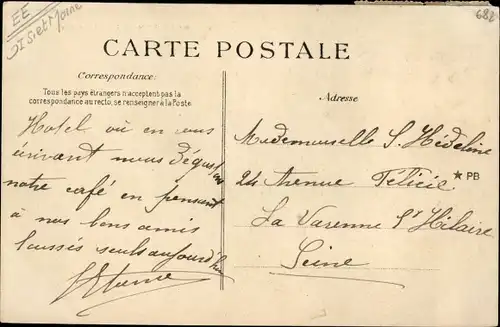 EE
682
CARTE POSTALE
Correspondance:
Tous les pays étrangers n'acceptent pas la
correspondance au recto, se renseigner à la Poste
Hotel où en vous
écrivant nous dégustons
notre café en pensant
à nos bons amis
laissés seuls aujourd'hui
Adresse
Mademoiselle S. Hédeline
24 Avenue Félicie
PB
La Varenne St Hilaire
Seine